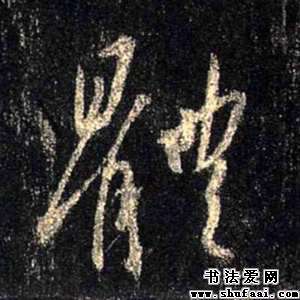 體
书法爱网
www.shufaai.com